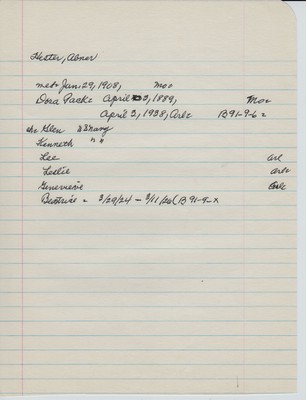 Hester, Abner
md= Jan. 29, 1908, Mo=
Dora Pack= April 3, 1889, Mo=
April 3, 1938, Ark= B91-9-6=
ch= Glen
Kenneth " "
Lee Ark
Leslie Ark=
Genevieve Ark
Beatrice = 3/29/24 - 3/11/26 (B 91-9-x